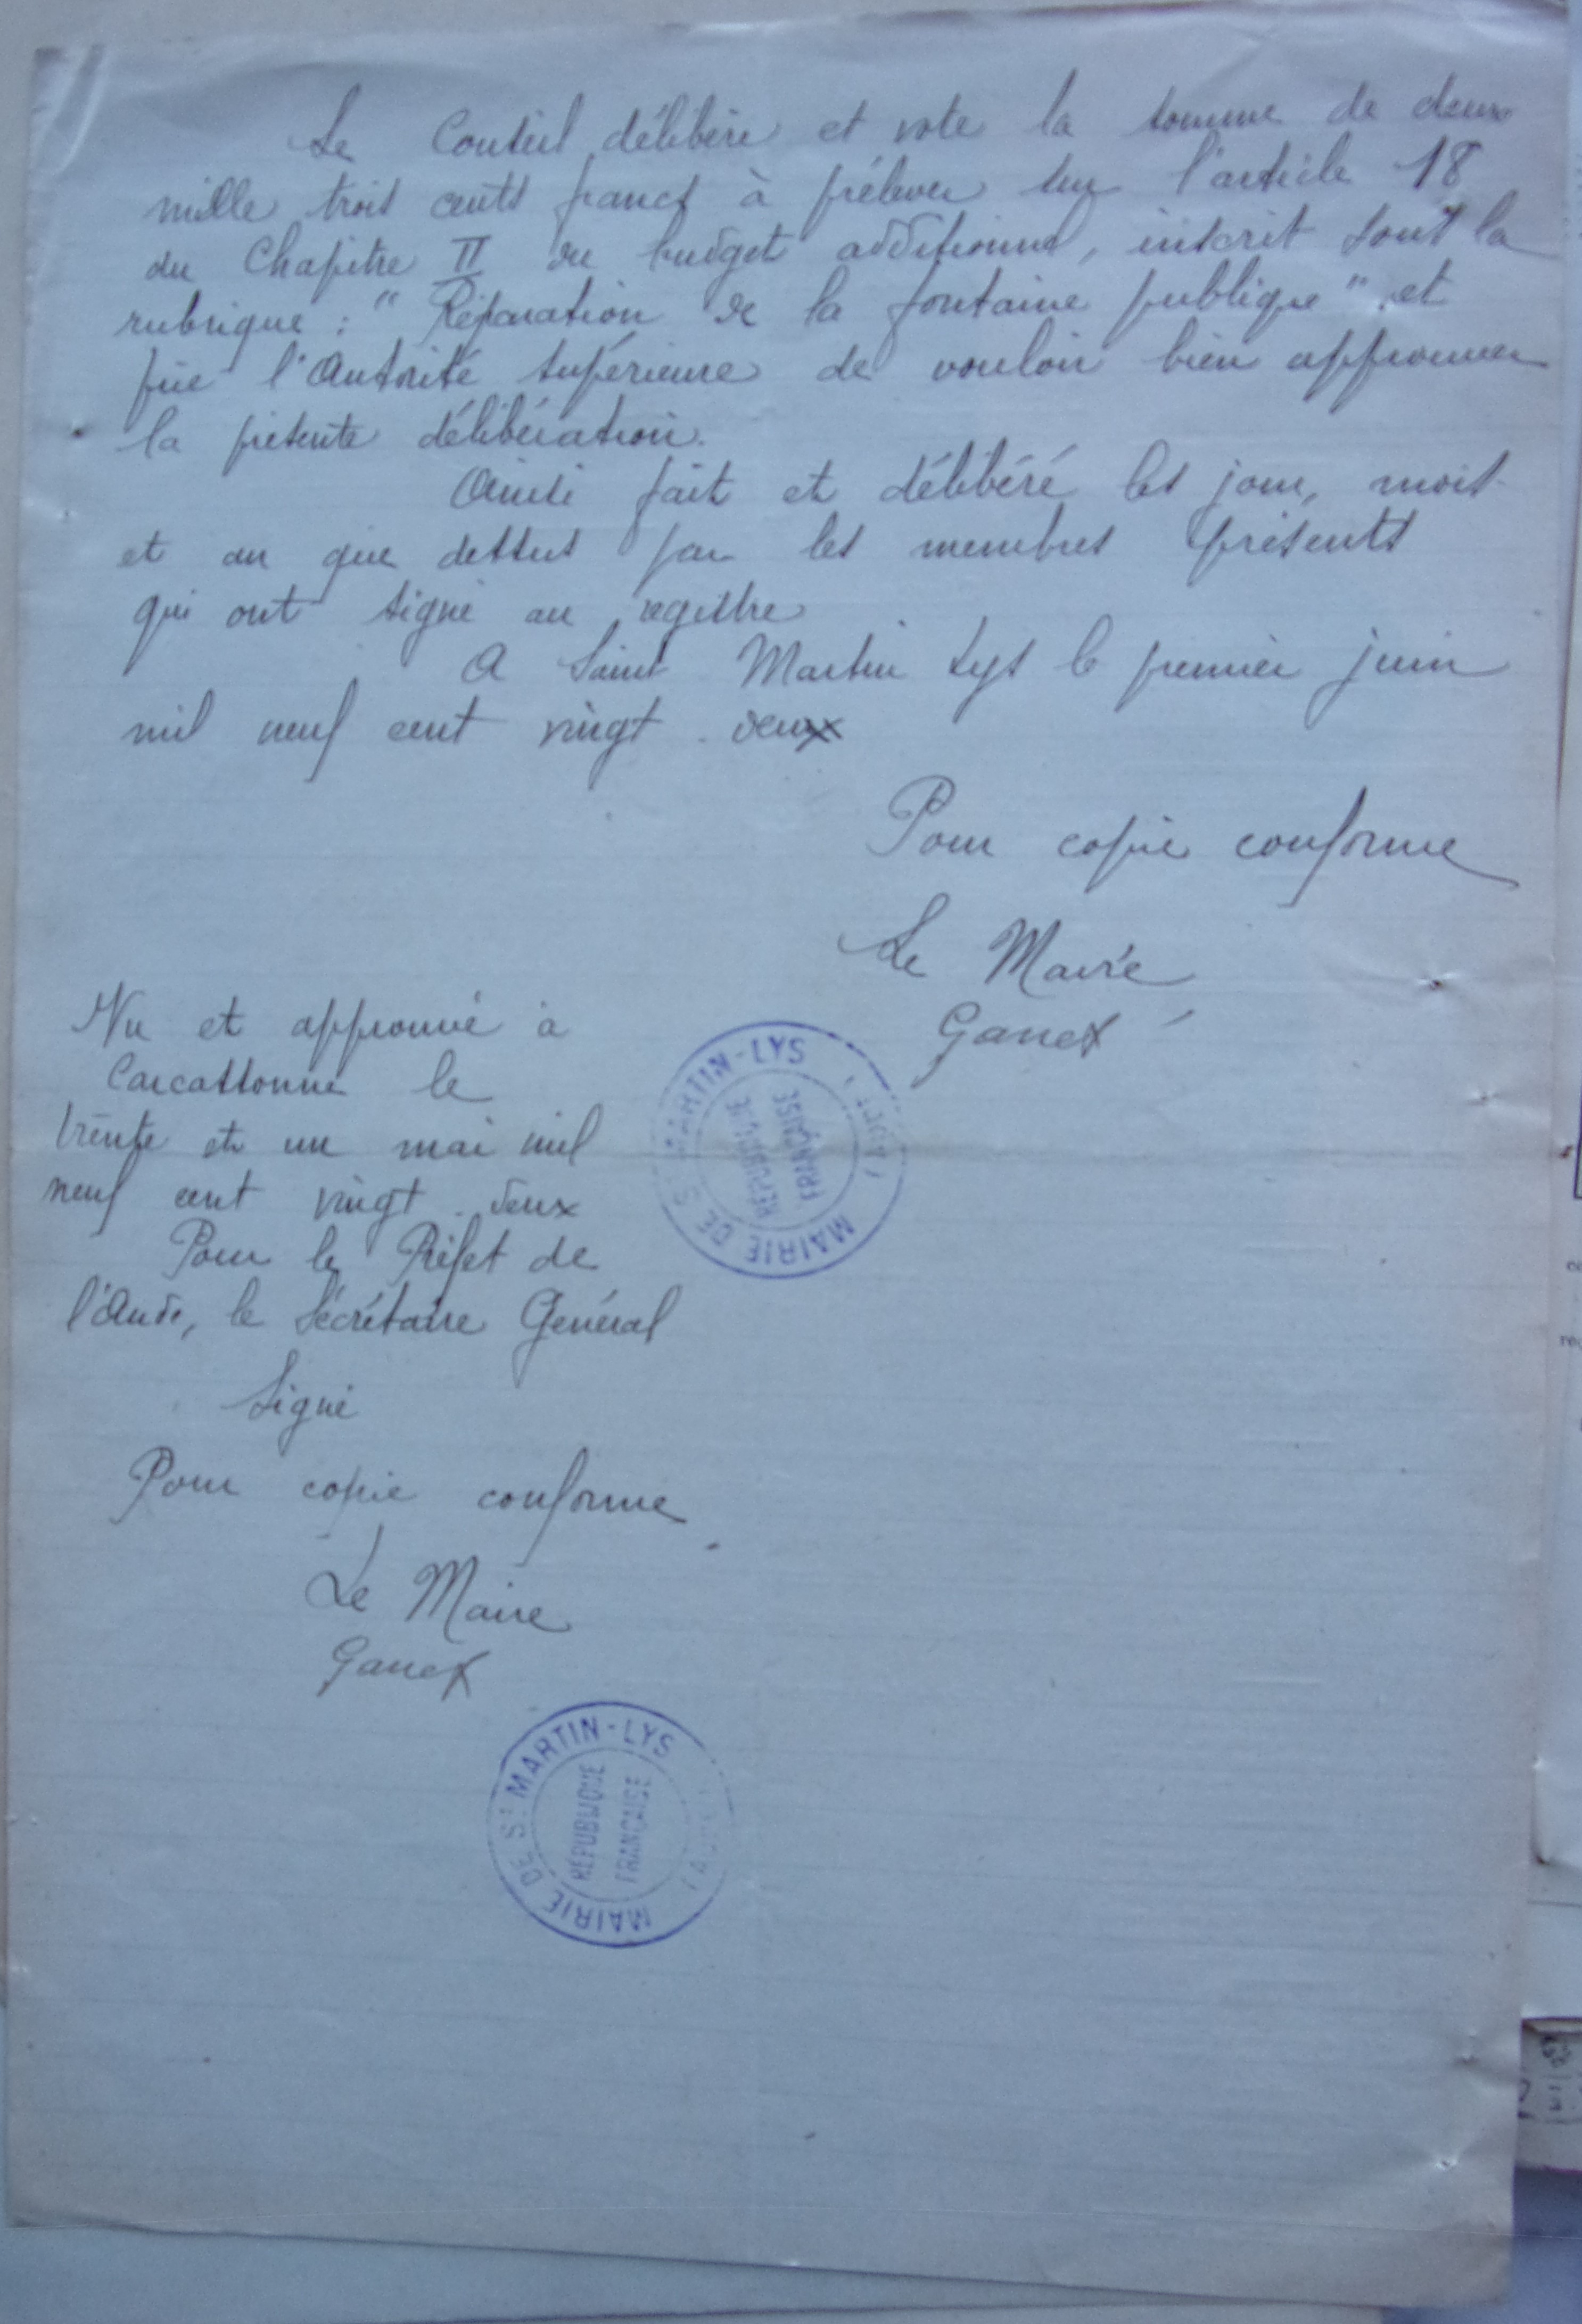 Le Conseil délibère et vote la somme de deux
mille trois cents francs à prélever sur l'article 18
du Chapitre II du budget additionnel, inscrit sous la
rubrique : " Réparation de la fontaine publique " et
prie l'Autorité supérieure de vouloir bien approuver
la présente délibération.
Ainsi fait et délibéré les jour, mois
et an que dessus par les membres présents
qui ont signé au registre
A Saint Martin Lys le premier juin
mil neuf cent vingt-deux
Pour copie conforme
Le Maire
Vu et approuvé à
Carcassonne le
trente et un mai mil
neuf cent vingt-deux
Pour le Préfet de
l'Aude, le Sécrétaire Général
Signé
Pour copie conforme
Le Maire
MAIRIE DE ST MARTIN-LYS
RÉPUBLIQUE
FRANÇAISE
MAIRIE DE ST MARTIN-LYS
RÉPUBLIQUE
FRANÇAISE